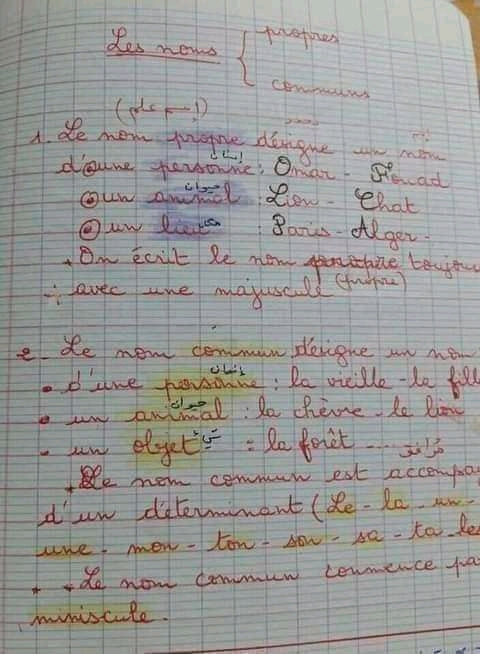 Les noms { propres
communs
(إسم علم)
1. Le nom propre désigne un nom
d'une personne إنسان : Omar - Fouad
un animal حيوان : Lion - Chat
un lieu مكان : Paris - Alger -
* On écrit le nom propre toujou
avec une majuscule (propre)
2. Le nom commun désigne un nom
• d'une personne إنسان : la vieille - la fill
• un animal حيوان : la chèvre - le lion
- un objet شيء : la forêt .... مرافق
* Le nom commun est accompa
d'un déterminant (Le - la - un -
une - mon - ton - son - sa - ta - les
* Le nom commun commence pa
miniscule.